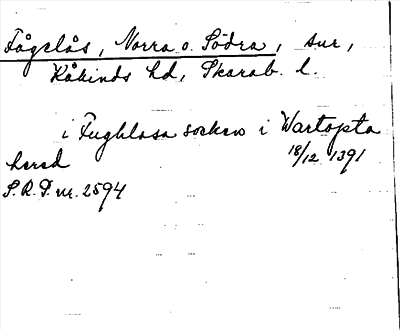 Fågelås, Norra o. Södra, snr,
Kåkinds hd, Skarab. l.
i Fughlasa soken i Wartopta
hered 18/12 1391
S.R.P. nr. 2594